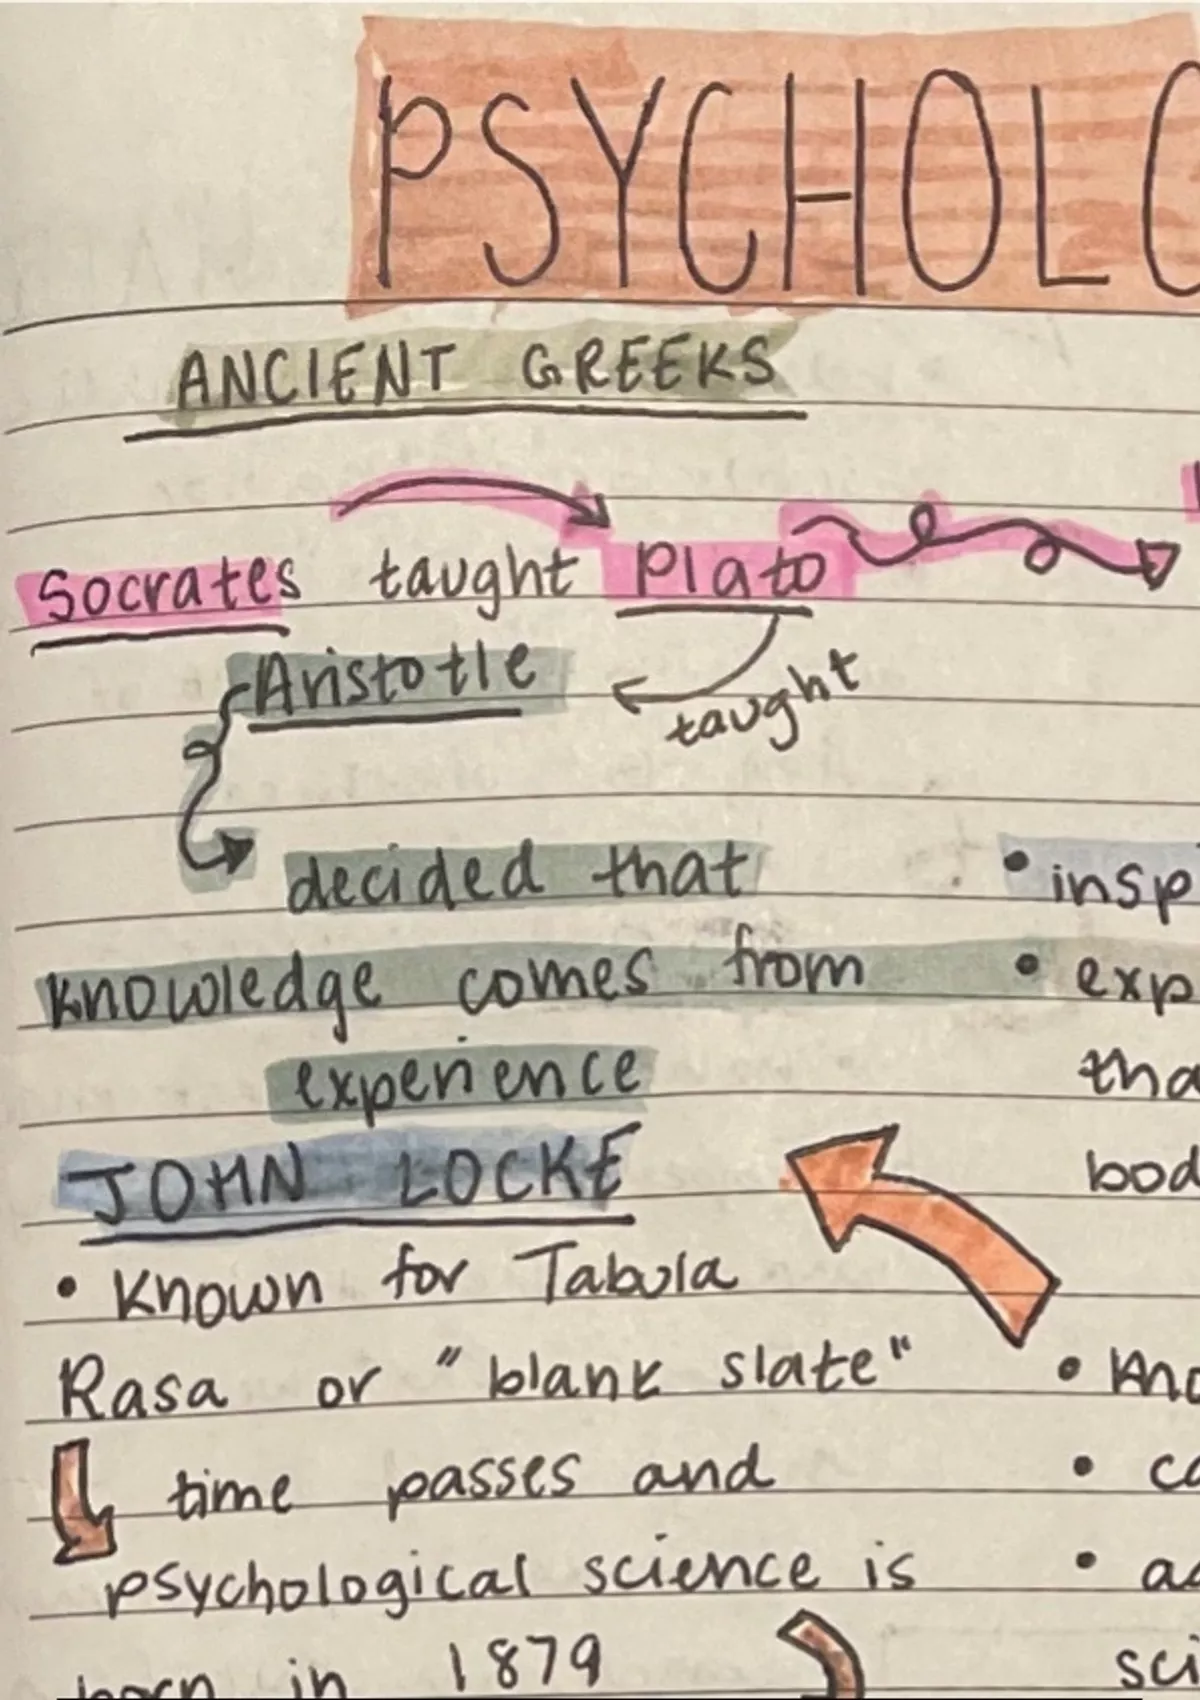 PSYCHOLO
ANCIENT GREEKS
Socrates taught Plato
Aristotle
taught
decided that
knowledge comes from
experience
JOHN LOCKE
• Known for Tabula
Rasa or "blank slate"
time passes and
psychological science is
born in 1879
• insp
• exp
tha
bod
• kno
• co
• ac
sci